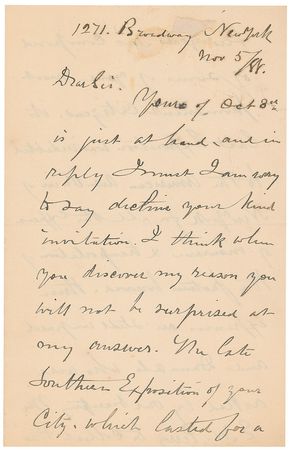 1271. Broadway New York
Nov 5/88.
Dear Sir.
Yours of Oct 3rd
is just at hand, and in
reply I must I am sorry
to say decline your kind
invitation. I think when
you discover my reason you
will not be surprised at
my answer. The late
Southern Exposition of your
City. which lasted for a